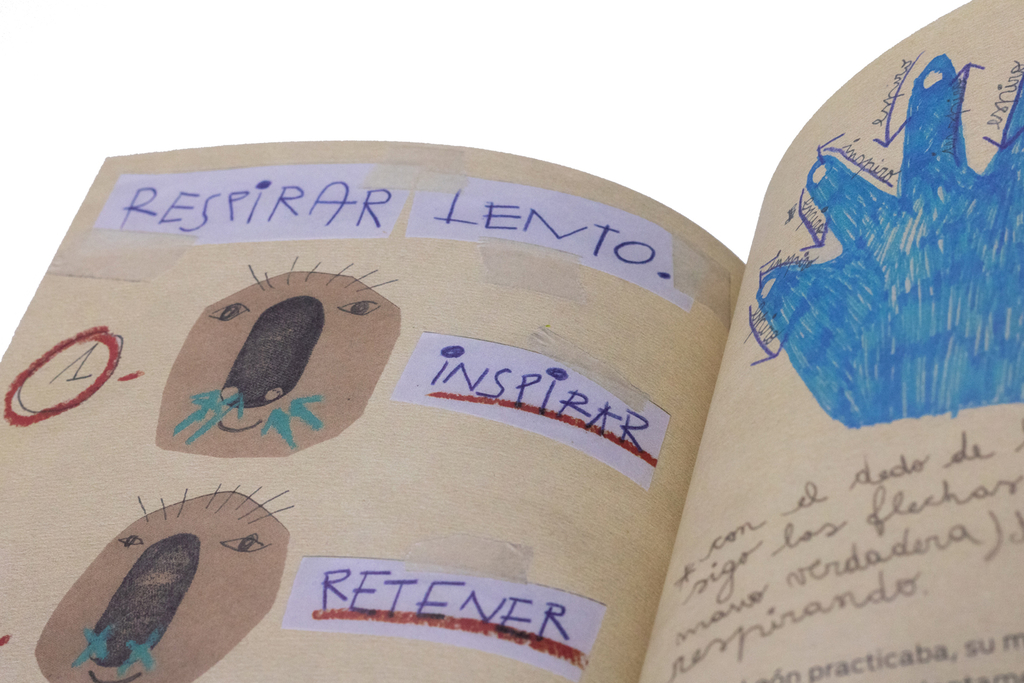 RESPIRAR LENTO.
1
INSPIRAR
RETENER
inspiro
inspiro
* con el dedo de
sigo las flechas
mano verdadera)
respirando.
practicaba, su